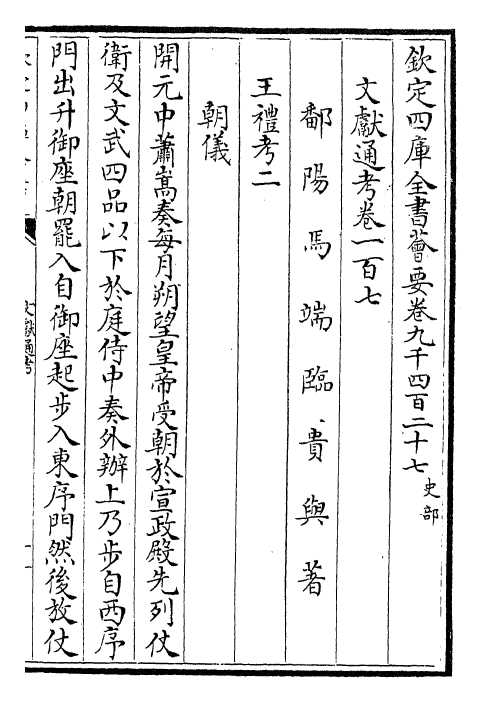 欽定四庫全書薈要卷九千四百二十七 史部
文獻通考卷一百七
鄱陽馬端臨貴與著
王禮考二
朝儀
開元中蕭嵩奏每月朔望皇帝受朝於宣政殿先列仗
衛及文武四品以下於庭侍中奏外辦上乃步自西序
門出升御座朝罷入自御座起步入東序門然後放仗
文獻通考